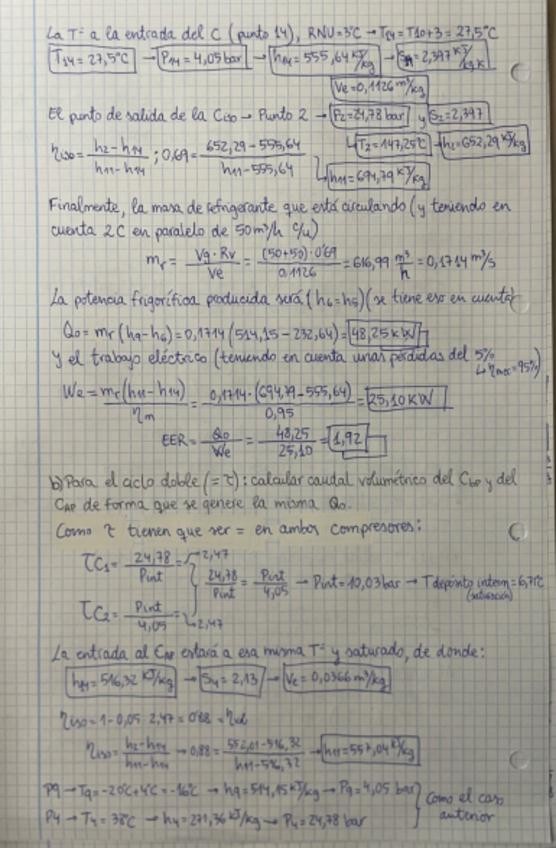 La Tª a la entrada del C (punto 14), RNU=3°C → T14=T10+3=27,5°C
T14=27,5°C → P14=4,05 bar → h14=555,64 kJ/kg → S14=2,397 kJ/kg K
Ve=0,1126 m³/kg
El punto de salida de la Ciso → Punto 2 → P2=24,78 bar y S2=2,397
T2=147,25°C → h2=652,29 kJ/kg
ηiso = (h2-h14)/(h11-h14) ; 0,69 = (652,29-555,64)/(h11-555,64)
h11=694,79 kJ/kg
Finalmente, la masa de refrigerante que está circulando (y teniendo en
cuenta 2C en paralelo de 50m³/h c/u)
mr = (Vg·Rv)/Ve = ((50+50)·0'69)/0,1126 = 616,99 m³/h = 0,1714 m³/s
La potencia frigorífica producida será (h6=h5) (se tiene eso en cuenta)
Qo=mr(h9-h6)=0,1714(514,15-232,64)=48,25kW
y el trabajo eléctrico (teniendo en cuenta unas pérdidas del 5%
↳ ηmec=95%)
We = mr(h11-h14)/ηm = 0,1714·(694,79-555,64)/0,95 = 25,10 KW
EER = Qo/We = 48,25/25,10 = 1,92
b) Para el ciclo doble (=τ): calcular caudal volumétrico del CBP y del
CAP de forma que se genere la misma Qo.
Como τ tienen que ser = en ambos compresores:
τC1 = 24,78/Pint = 2,47
24,78/Pint = Pint/4,05 → Pint=10,03 bar → T depósito interm=6,71°C
(saturación)
τC2 = Pint/4,05 = 2,47
La entrada al CAP estará a esa misma Tª y saturado, de donde:
h14=516,32 kJ/kg → S14=2,13 → Ve=0,0366 m³/kg
ηiso=1-0,05·2,47=0'88=ηvol
ηiso = (h2-h14)/(h11-h14) → 0,88 = (552,01-516,32)/(h11-516,32) → h11=557,04 kJ/kg
P9 → T9=-20°C+4°C=-16°C → h9=514,15 kJ/kg → P9=4,05 bar
P4 → T4=38°C → h4=271,36 kJ/kg → P4=24,78 bar
Como el caso
anterior